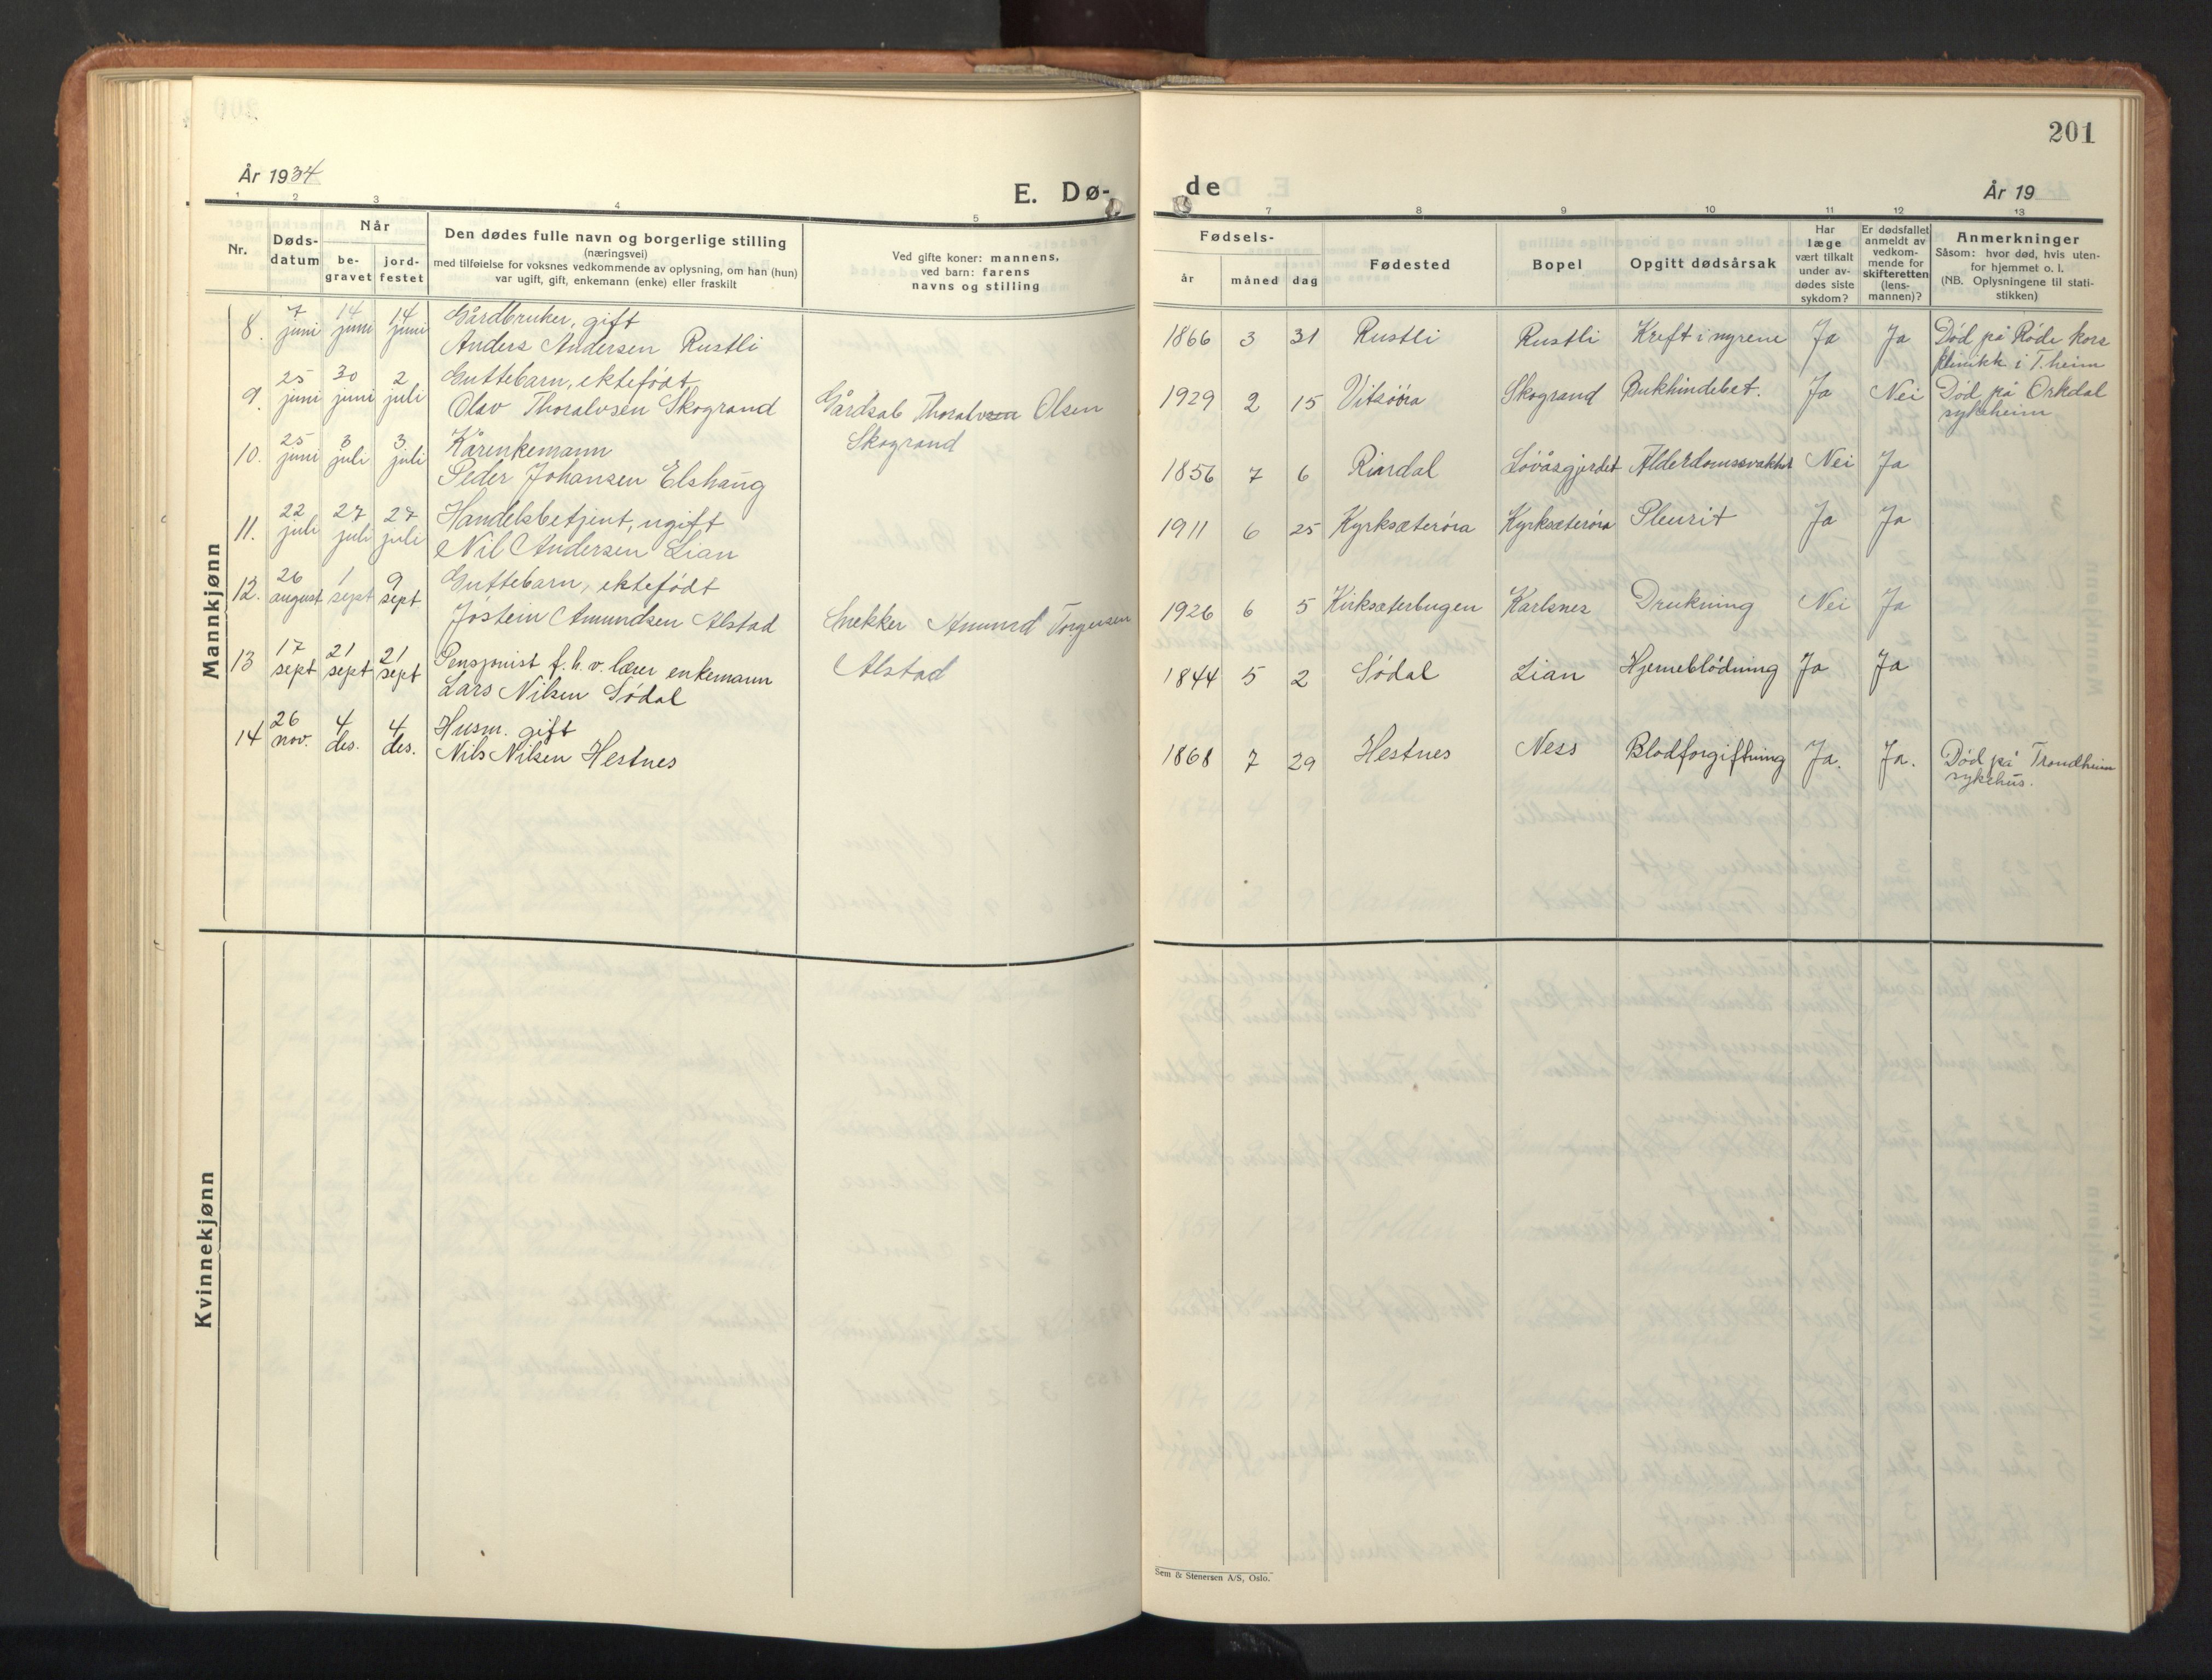 201
År 1934
E. Dø-
de
År 19
1 2 3 4 5
7 8 9 10 11 12 13
Nr.
Døds-
datum
Når
be-
gravet
jord-
festet
Den dødes fulle navn og borgerlige stilling
(næringsvei)
med tilføielse for voksnes vedkommende av oplysning, om han (hun)
var ugift, gift, enkemann (enke) eller fraskilt
Ved gifte koner: mannens,
ved barn: farens
navns og stilling
Fødsels-
år
måned
dag
Fødested
Bopel
Opgitt dødsårsak
Har
læge
vært tilkalt
under av-
dødes siste
sykdom?
Er dødsfallet
anmeldt av
vedkom-
mende for
skifteretten
(lens-
mannen)?
Anmerkninger
Såsom: hvor død, hvis uten-
for hjemmet o. l.
(NB. Oplysningene til stati-
stikken)
Mannkjønn
8. 7 juni 14 juni 14 juni Gårdbruker, gift
Anders Andersen Rustli
1866 3 31 Rustli Rustli Kreft i nyrene Ja Ja Død på Røde kors
klinikk i T.heim
9. 25 juni 30 juni 2 juli Guttebarn, ektefødt
Olav Thoralvsen Skogrand Gårdsab Thoralv Olsen
Skogrand
1929 2 15 Vitsøra Skogrand Bukhindebet. Ja Nei Død på Orkdal
sykeheim
10. 25 juni 3 juli 3 juli Kårenkemann
Peder Johansen Elshaug
1856 7 6 Rindal Løvåsgjerdet Alderdomssvakhet Nei Ja
11. 22 juli 27 juli 27 juli Handelsbetjent, ugift
Nil Andersen Lian
1911 6 25 Kyrksæterøra Kyrksæterøra Pleurit Ja Ja
12. 26 august 1 sept 9 sept Guttebarn, ektefødt
Jostein Amundsen Alstad Snekker Amund Torgersen
Alstad
1926 6 5 Kirksæterbugen Karlsnes Drukning Nei Ja
13 17 sept 21 sept 21 sept Pensjonist f.h.v. lærer enkemann
Lars Nilsen Sødal
1844 5 2 Sødal Lian Hjerneblødning Ja Ja
14 26 nov. 4 des. 4 des. Husm. gift
Nils Nilsen Hestnes
1868 7 29 Hestnes Ness Blodforgiftning Ja. Ja. Død på Trondheim
sykehus.
Kvinnekjønn
Sem & Stenersen A/S, Oslo.